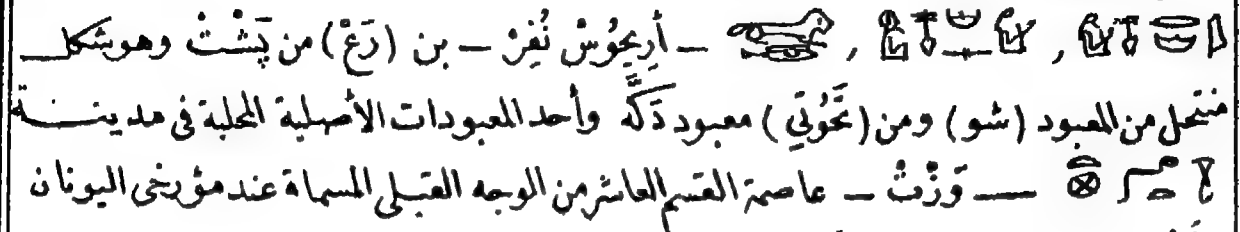 — أَرِيحُوسْ نُفِرْ — بن (رَعْ) من پَشْتْ وهو شكل
منتحل من المعبود (شو) ومن (تَحُوتِي) معبود دَكَّه وأحد المعبودات الأصلية المحلية فى مدينة
— وَزْتْ — عاصمة القسم العاشر من الوجه القبلى المسماة عند مؤرخى اليونان